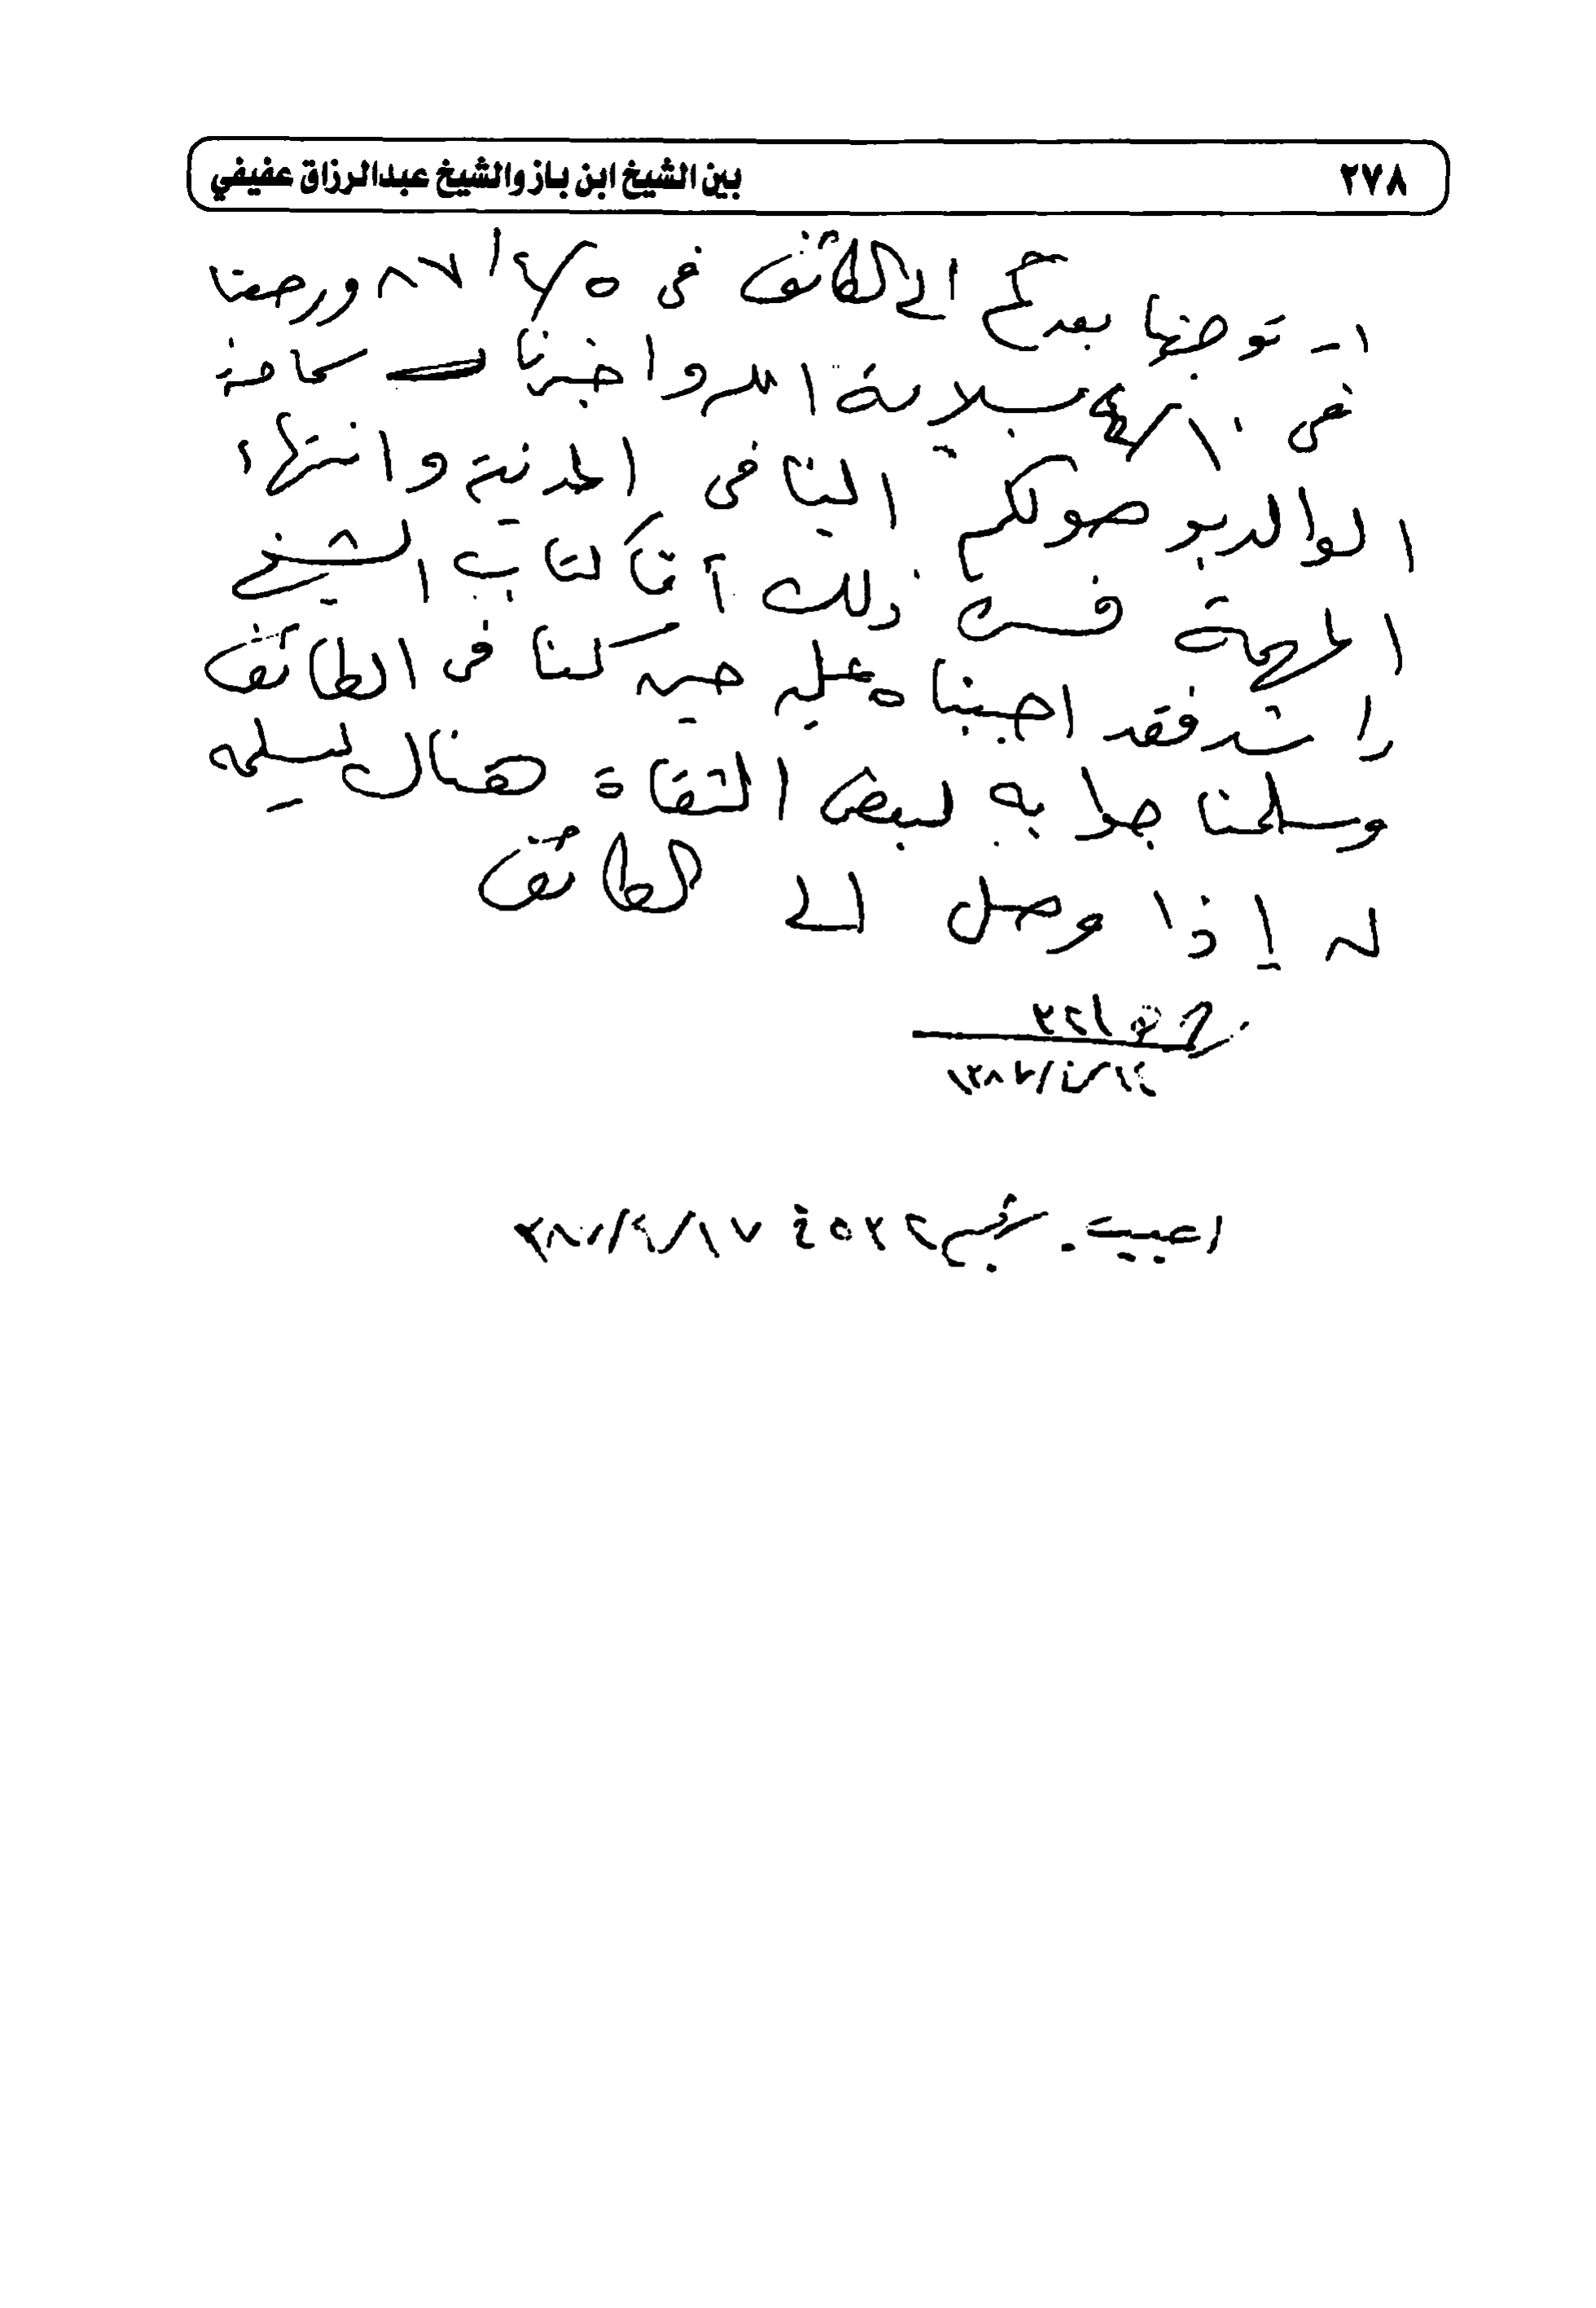 ٢٧٨
بين الشيخ ابن باز والشيخ عبدالرزاق عفيفي
١ـ توجهنا بعدكم الى الطائف فى ٥/٤/٨٧ ورجعنا
فى ١٠/٤ بسلامة الله واخبرنا سماحة
الوالد بوصولكم الينا فى المدينة وانتهاء
المهمة فسره ذلك أما كتاب الشيخ
راشد فقد اجبناه عليه حين كنا فى الطائف
وسلمنا جوابه لبعض الثقاة هناك ليسلمه
له إذا وصل الى الطائف
اجيب برقم ٢٥٢٤ ١٧